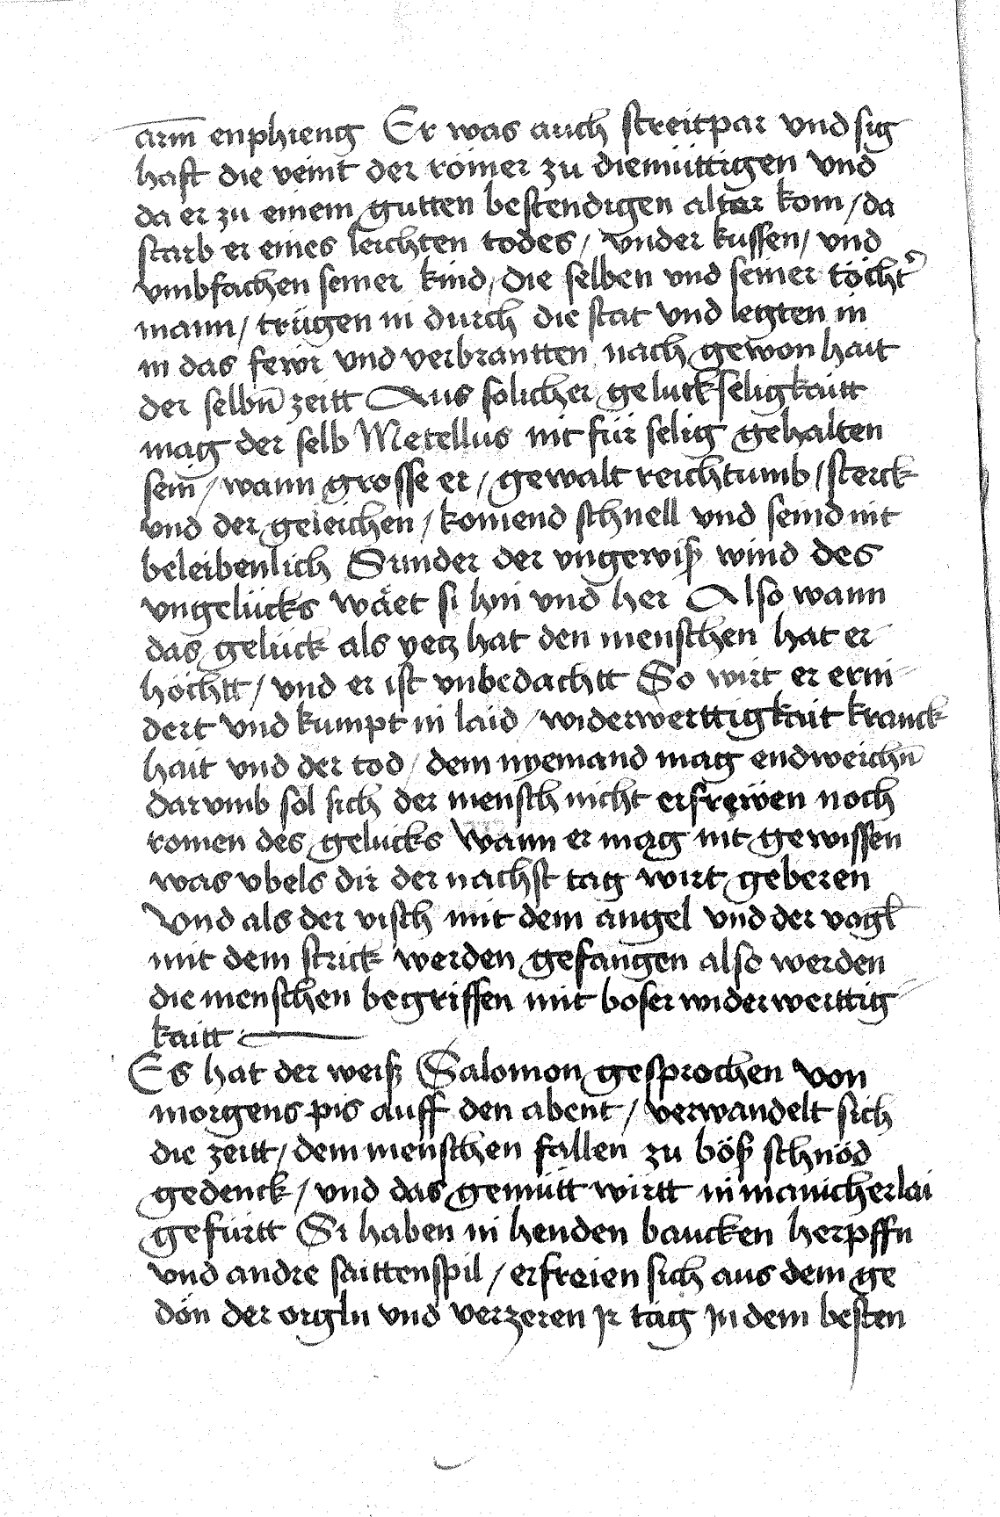 arm̄ enphieng Er was auch streitpar vnd sig
haft die veint der römer zu diemüttigen vnd
da er zu einem gutten bestendigen altar kom / da
starb er eines leichten todes / vnder kussen / vnd
vmbfachen seiner kind / die selben vnd seiner töcht͛
mann / trügen in durch die stat vnd legten in
in das fewr vnd verbrantten nach gewonhait
der selbn̄ zeitt Aus solicher geluckseligkaitt
mag der selb Metellus nit für selig gehalten
sein / wann grosse er / gewalt reichtumb / sterck
vnd der geleichen / komend schnell vnd seind nit
beleibenlich Sunder der vngewiß wind des
vngelücks wäet si hin vnd her Also wann
das gelück als yetz hat den menschen hat er
höchtt / vnd er ist vnbedachtt So wirt er erni
dert vnd kumpt in laid / widerwerttigkait kranck
hait vnd der tod / dem nyemand mag endweichn̄
darvmb sol sich der mensch nicht erfreẅen noch
romen des gelucks Wann er mag nit gewissen
was vbels dir der nachst tag wirt geberen
Vnd als der visch mit dem angel vnd der vogl̄
mit dem strick werden gefangen also werden
die menschen begriffen mit boser widerwerttig
kaitt
Es hat der weiß Salomon gesprochen von
morgens pis auff den abent / verwandelt sich
die zeitt / dem menschen fallen zu böß schnöd
gedenck / vnd das gemütt wirtt in manicherlai
gefürtt Si haben in henden baucken herpffn
vnd andre saittenspil / erfreien sich aus dem ge
dön der orgln vnd verzeren jr täg jn dem besten